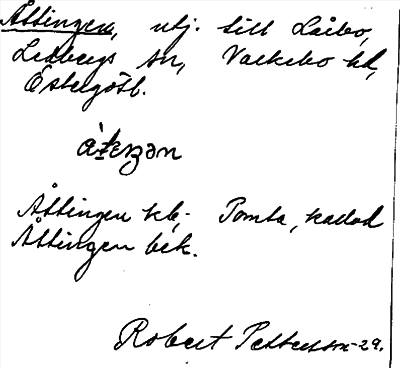 Åttingen, utj. till Låibo,
Ledbergs sn, Valkebo hd,
Östergötl.
Åttingen kb.- Tomta, kallad
Åttingen bék.
Robert Pettersson-29.